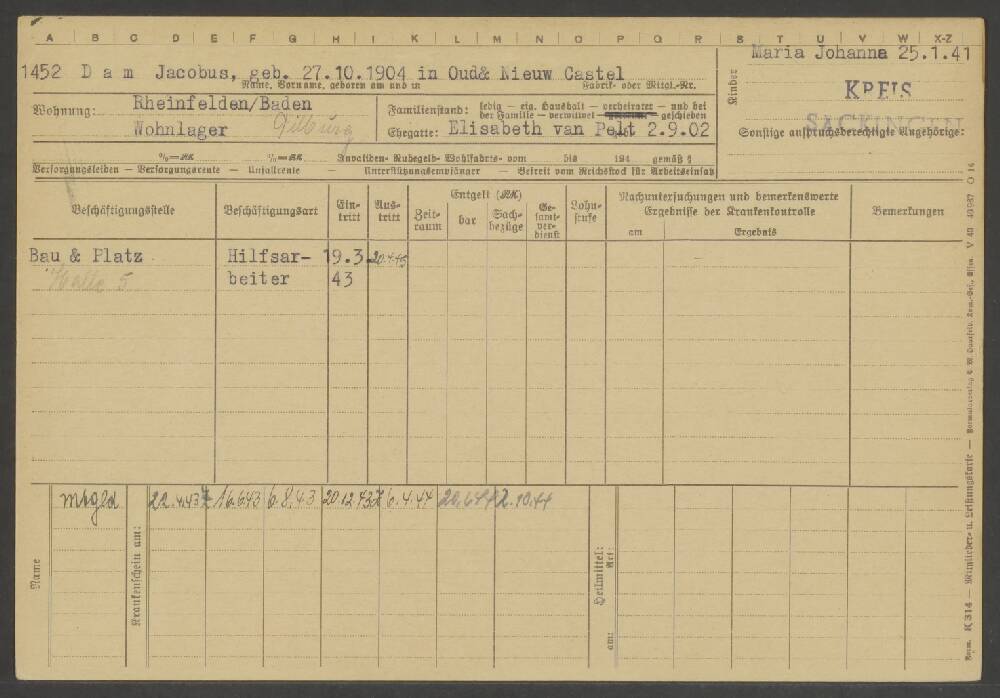 A B C D E F G H I K L M N O P Q R S T U V W X-Z
Maria Johanna 25.1.41
1452 D a m Jacobus, geb. 27.10.1904 in Oud& Nieuw Castel
Name, Vorname, geboren am und in Fabrik- oder Mitgl.-Nr.
Kinder
KREIS
SÄCKINGEN
Wohnung: Rheinfelden/Baden
Wohnlager
Familienstand: ledig – eig. Haushalt – verheiratet – und bei
der Familie – verwitwet – geschieden
Ehegatte: Elisabeth van Pelt 2.9.02
Sonstige anspruchsberechtigte Angehörige:
%=RK %=RK Invaliden- Ruhegeld- Wohlfahrts- vom bis 194 gemäß §
Versorgungsleiden – Versorgungsrente – Unfallrente – Unterstützungsempfänger – Befreit vom Reichsstock für Arbeitseinsatz
Beschäftigungsstelle
Beschäftigungsart
Ein-
tritt
Aus-
tritt
Entgelt (RK)
Zeit-
raum
bar
Sach-
bezüge
Ge-
samt-
ver-
dienst
Lohn-
stufe
Nachuntersuchungen und bemerkenswerte
Ergebnisse der Krankenkontrolle
am Ergebnis
Bemerkungen
Bau & Platz Hilfsar- 19.3. 20.4.45
Halle 5 beiter 43
Name
Mitgld
Krankenschein am:
22.4.43 16.6.43 6.8.43 20.12.43 6.4.44 20.6.44 2.10.44
Heilmittel:
Art:
am:
Form. K 314 — Mitglieder- u. Leistungskarte —